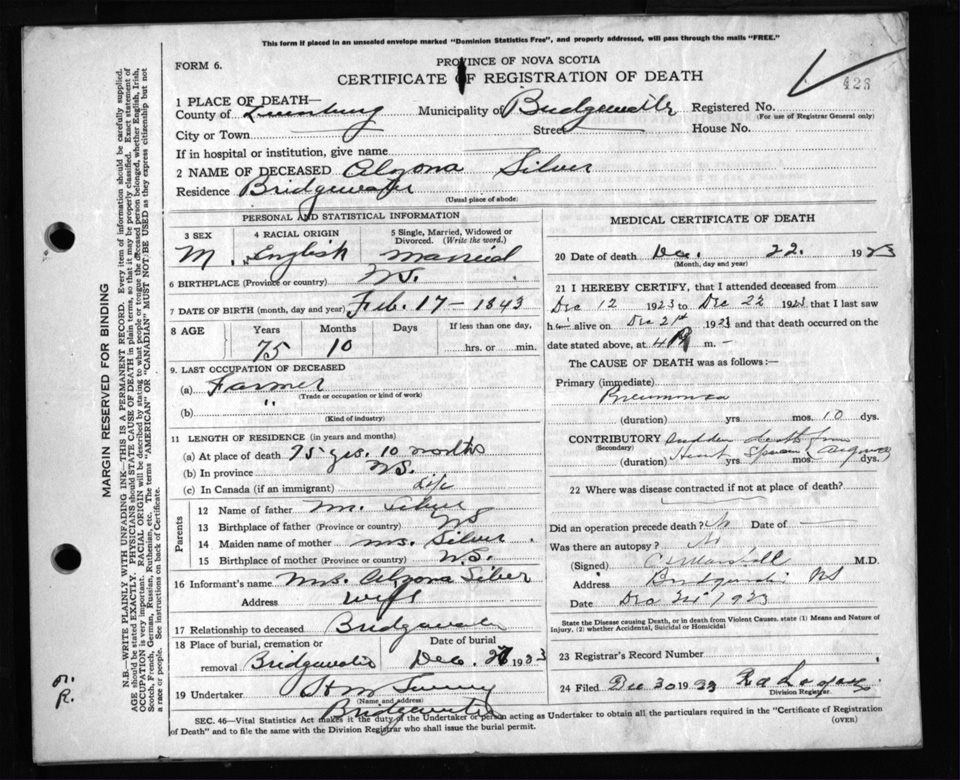 This form if placed in an unsealed envelope marked "Dominion Statistics Free", and properly addressed, will pass through the mails "FREE."
FORM 6.
PROVINCE OF NOVA SCOTIA
CERTIFICATE OF REGISTRATION OF DEATH
428
1 PLACE OF DEATH—
County of Lunenburg Municipality of Bridgewater Registered No.
(For use of Registrar General only)
City or Town Street House No.
If in hospital or institution, give name
2 NAME OF DECEASED Alozona Silver
Residence Bridgewater
(Usual place of abode)
PERSONAL AND STATISTICAL INFORMATION
3 SEX 4 RACIAL ORIGIN 5 Single, Married, Widowed or Divorced. (Write the word.)
M. English Married
6 BIRTHPLACE (Province or country) N.S.
7 DATE OF BIRTH (month, day and year) Feb. 17 - 1843
8 AGE Years Months Days If less than one day,
75 10 hrs. or min.
9. LAST OCCUPATION OF DECEASED
(a) Farmer
(Trade or occupation or kind of work)
(b) "
(Kind of industry)
11 LENGTH OF RESIDENCE (in years and months)
(a) At place of death 75 yrs. 10 months
(b) In province N.S.
(c) In Canada (if an immigrant) Life
Parents
12 Name of father Mr. Silver
13 Birthplace of father (Province or country) NS
14 Maiden name of mother Mrs. Silver.
15 Birthplace of mother (Province or country) N.S.
16 Informant's name Mrs. Alozona Silver
Address Wife
17 Relationship to deceased Bridgewater
18 Place of burial, cremation or removal Bridgewater Date of burial Dec. 1923
19 Undertaker H M
(Name and address)
Bridgewater
MEDICAL CERTIFICATE OF DEATH
20 Date of death Dec. 22. 1923
(Month, day and year)
21 I HEREBY CERTIFY, that I attended deceased from
Dec 12 1923 to Dec 22 1923 that I last saw
h alive on Dec 21st 1923 and that death occurred on
date stated above, at 4 m.—
The CAUSE OF DEATH was as follows:—
Primary (immediate)
Pneumonia
(duration) yrs. mos. 10 dys.
CONTRIBUTORY sudden death from
(Secondary)
(duration) Heart yrs. mos. dys.
22 Where was disease contracted if not at place of death?
Did an operation precede death? No Date of
Was there an autopsy? No
(Signed) C Marshall M.D.
Address Bridgewater NS
Date Dec 1923
State the Disease causing Death, or in death from Violent Causes. state (1) Means and Nature of Injury, (2) whether Accidental, Suicidal or Homicidal
23 Registrar's Record Number
24 Filed Dec 30 1923
Division Registrar.
SEC. 46—Vital Statistics Act makes it the duty of the Undertaker or person acting as Undertaker to obtain all the particulars required in the "Certificate of Registration
of Death" and to file the same with the Division Registrar who shall issue the burial permit. (OVER)
MARGIN RESERVED FOR BINDING
N.B.—WRITE PLAINLY WITH UNFADING INK—THIS IS A PERMANENT RECORD. Every item of information should be carefully supplied.
AGE should be stated EXACTLY. PHYSICIANS should STATE CAUSE OF DEATH in plain terms, so that it may be properly classified. Exact statement of
OCCUPATION is very important. RACIAL ORIGIN will be described by stating to what people or tongue the deceased person belonged, whether English, Irish,
Scotch, French, German, Russian, Ruthenian, etc. The terms "AMERICAN" or "CANADIAN" MUST NOT BE USED as they express citizenship but not
a race or people. See instructions on back of Certificate.